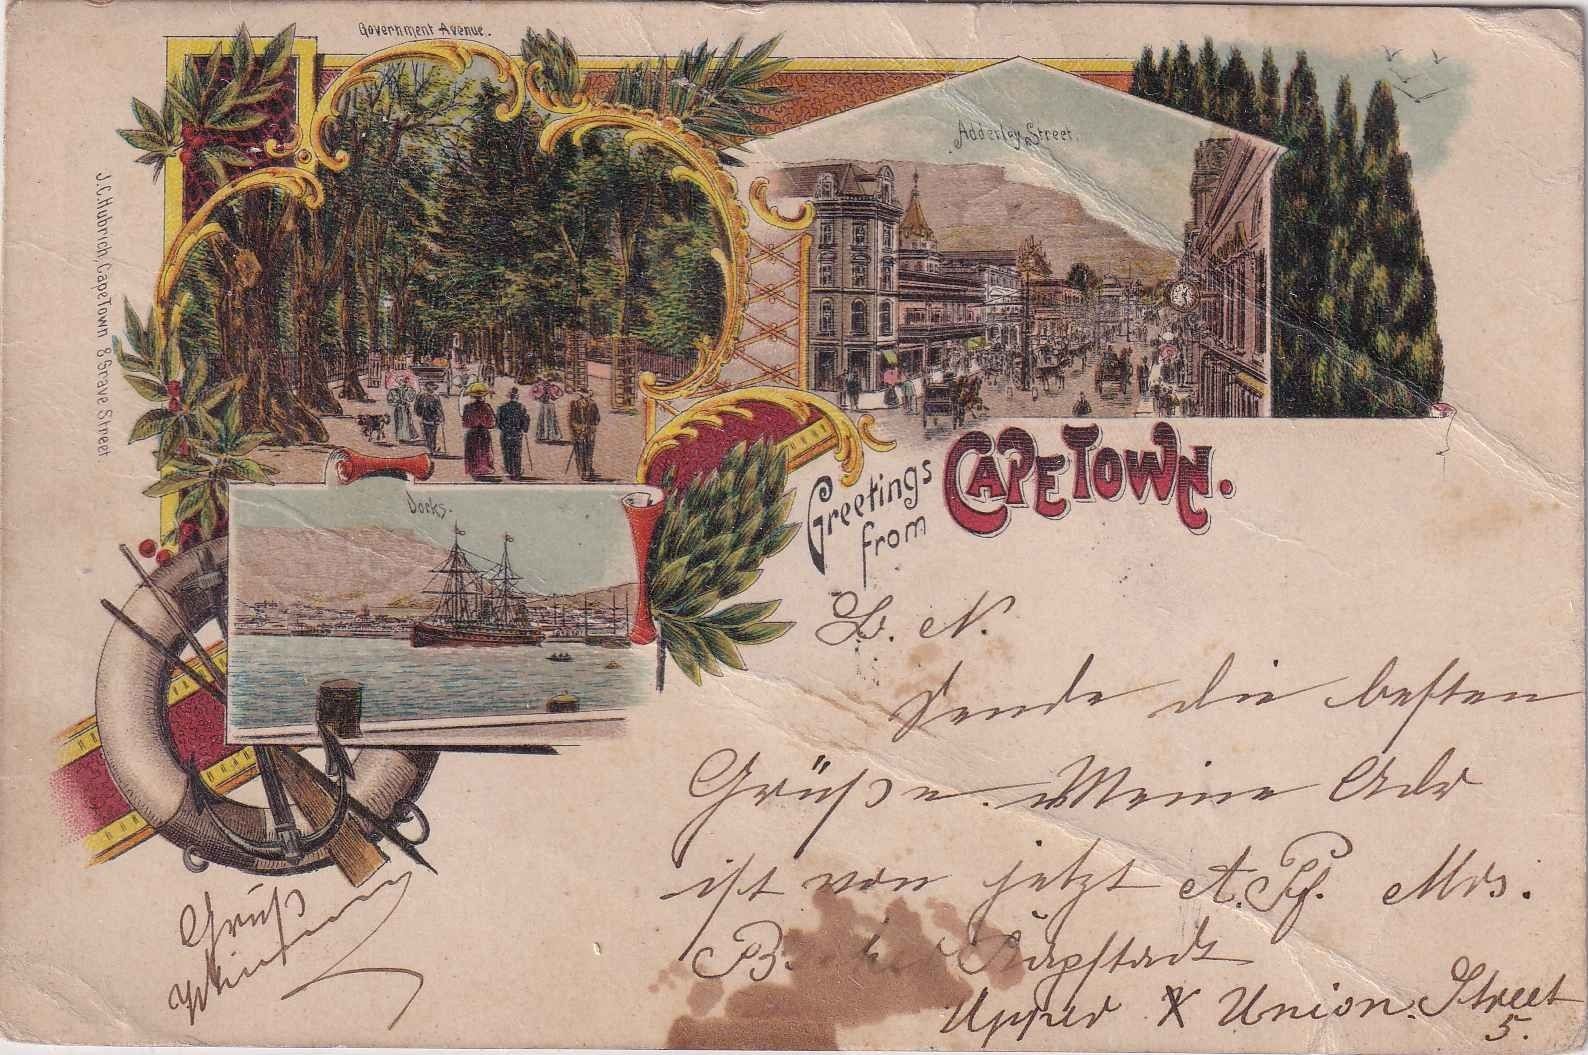 Government Avenue.
Adderley Street.
J.C.Hubrich, CapeTown 8 Grave Street
Docks.
Greetings
from
CAPE TOWN.
L. N.
Sende die besten
Grüße. Meine Adr
ist von jetzt A. Pf. Mrs.
Kapstadt
Upper X Union Street
5.
Gruß